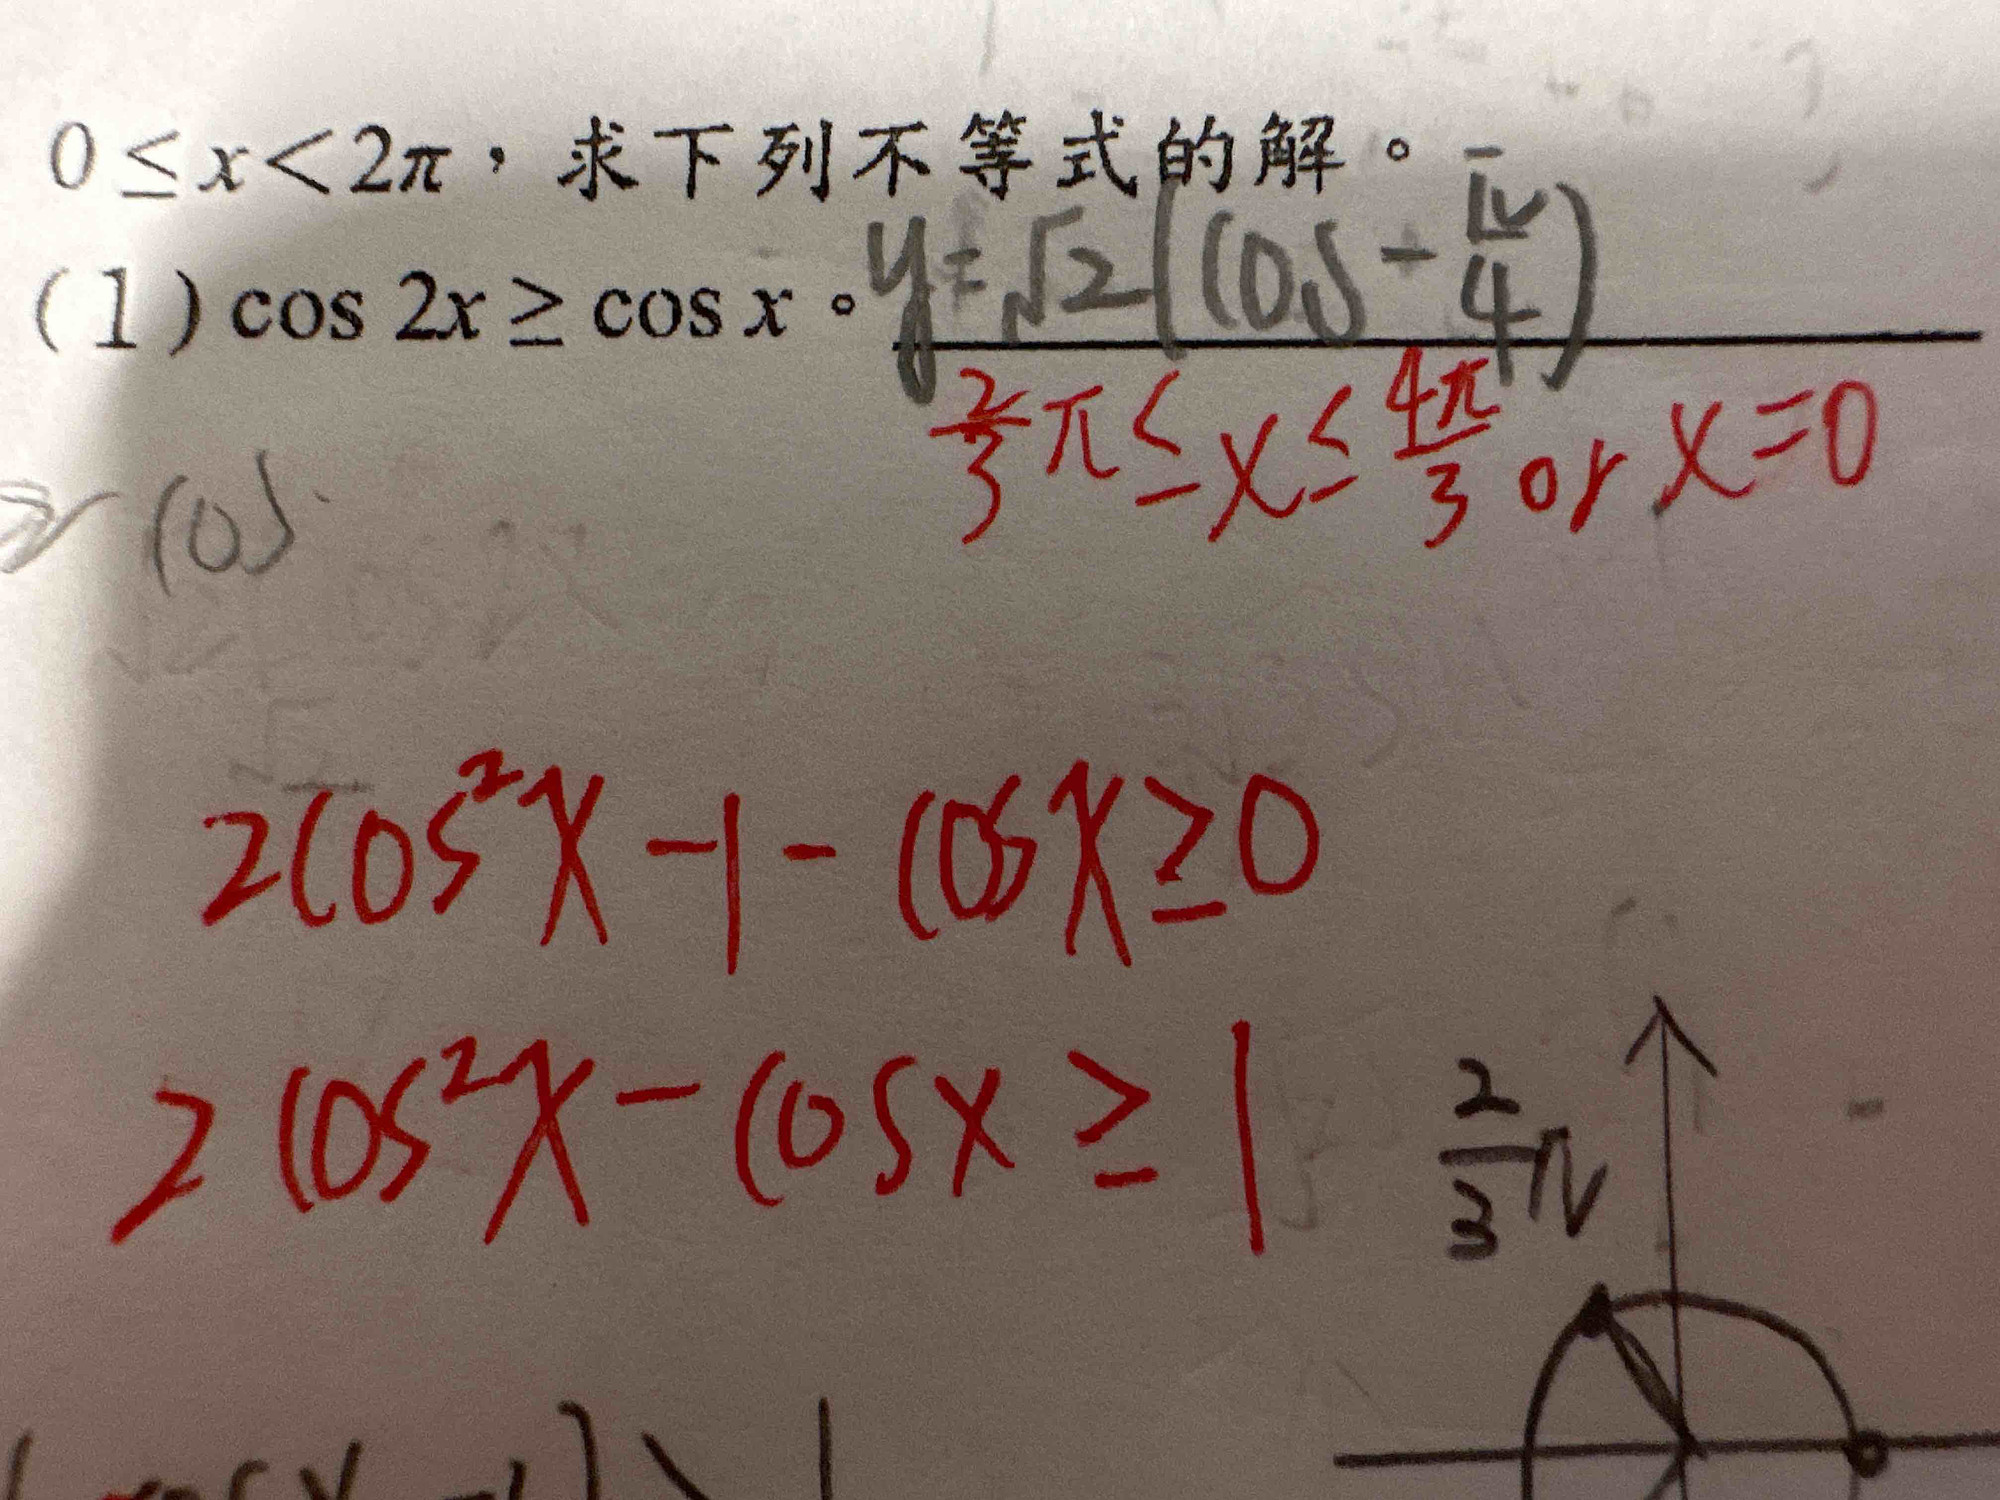 0 ≤ x < 2π，求下列不等式的解。
(1) cos 2x ≥ cos x。y=√2(cos-π/4)
2/3 π ≤ x ≤ 4π/3 or x=0
cos
2cos²x-1-cosx≥0
2cos²x-cosx≥1
2/3 π